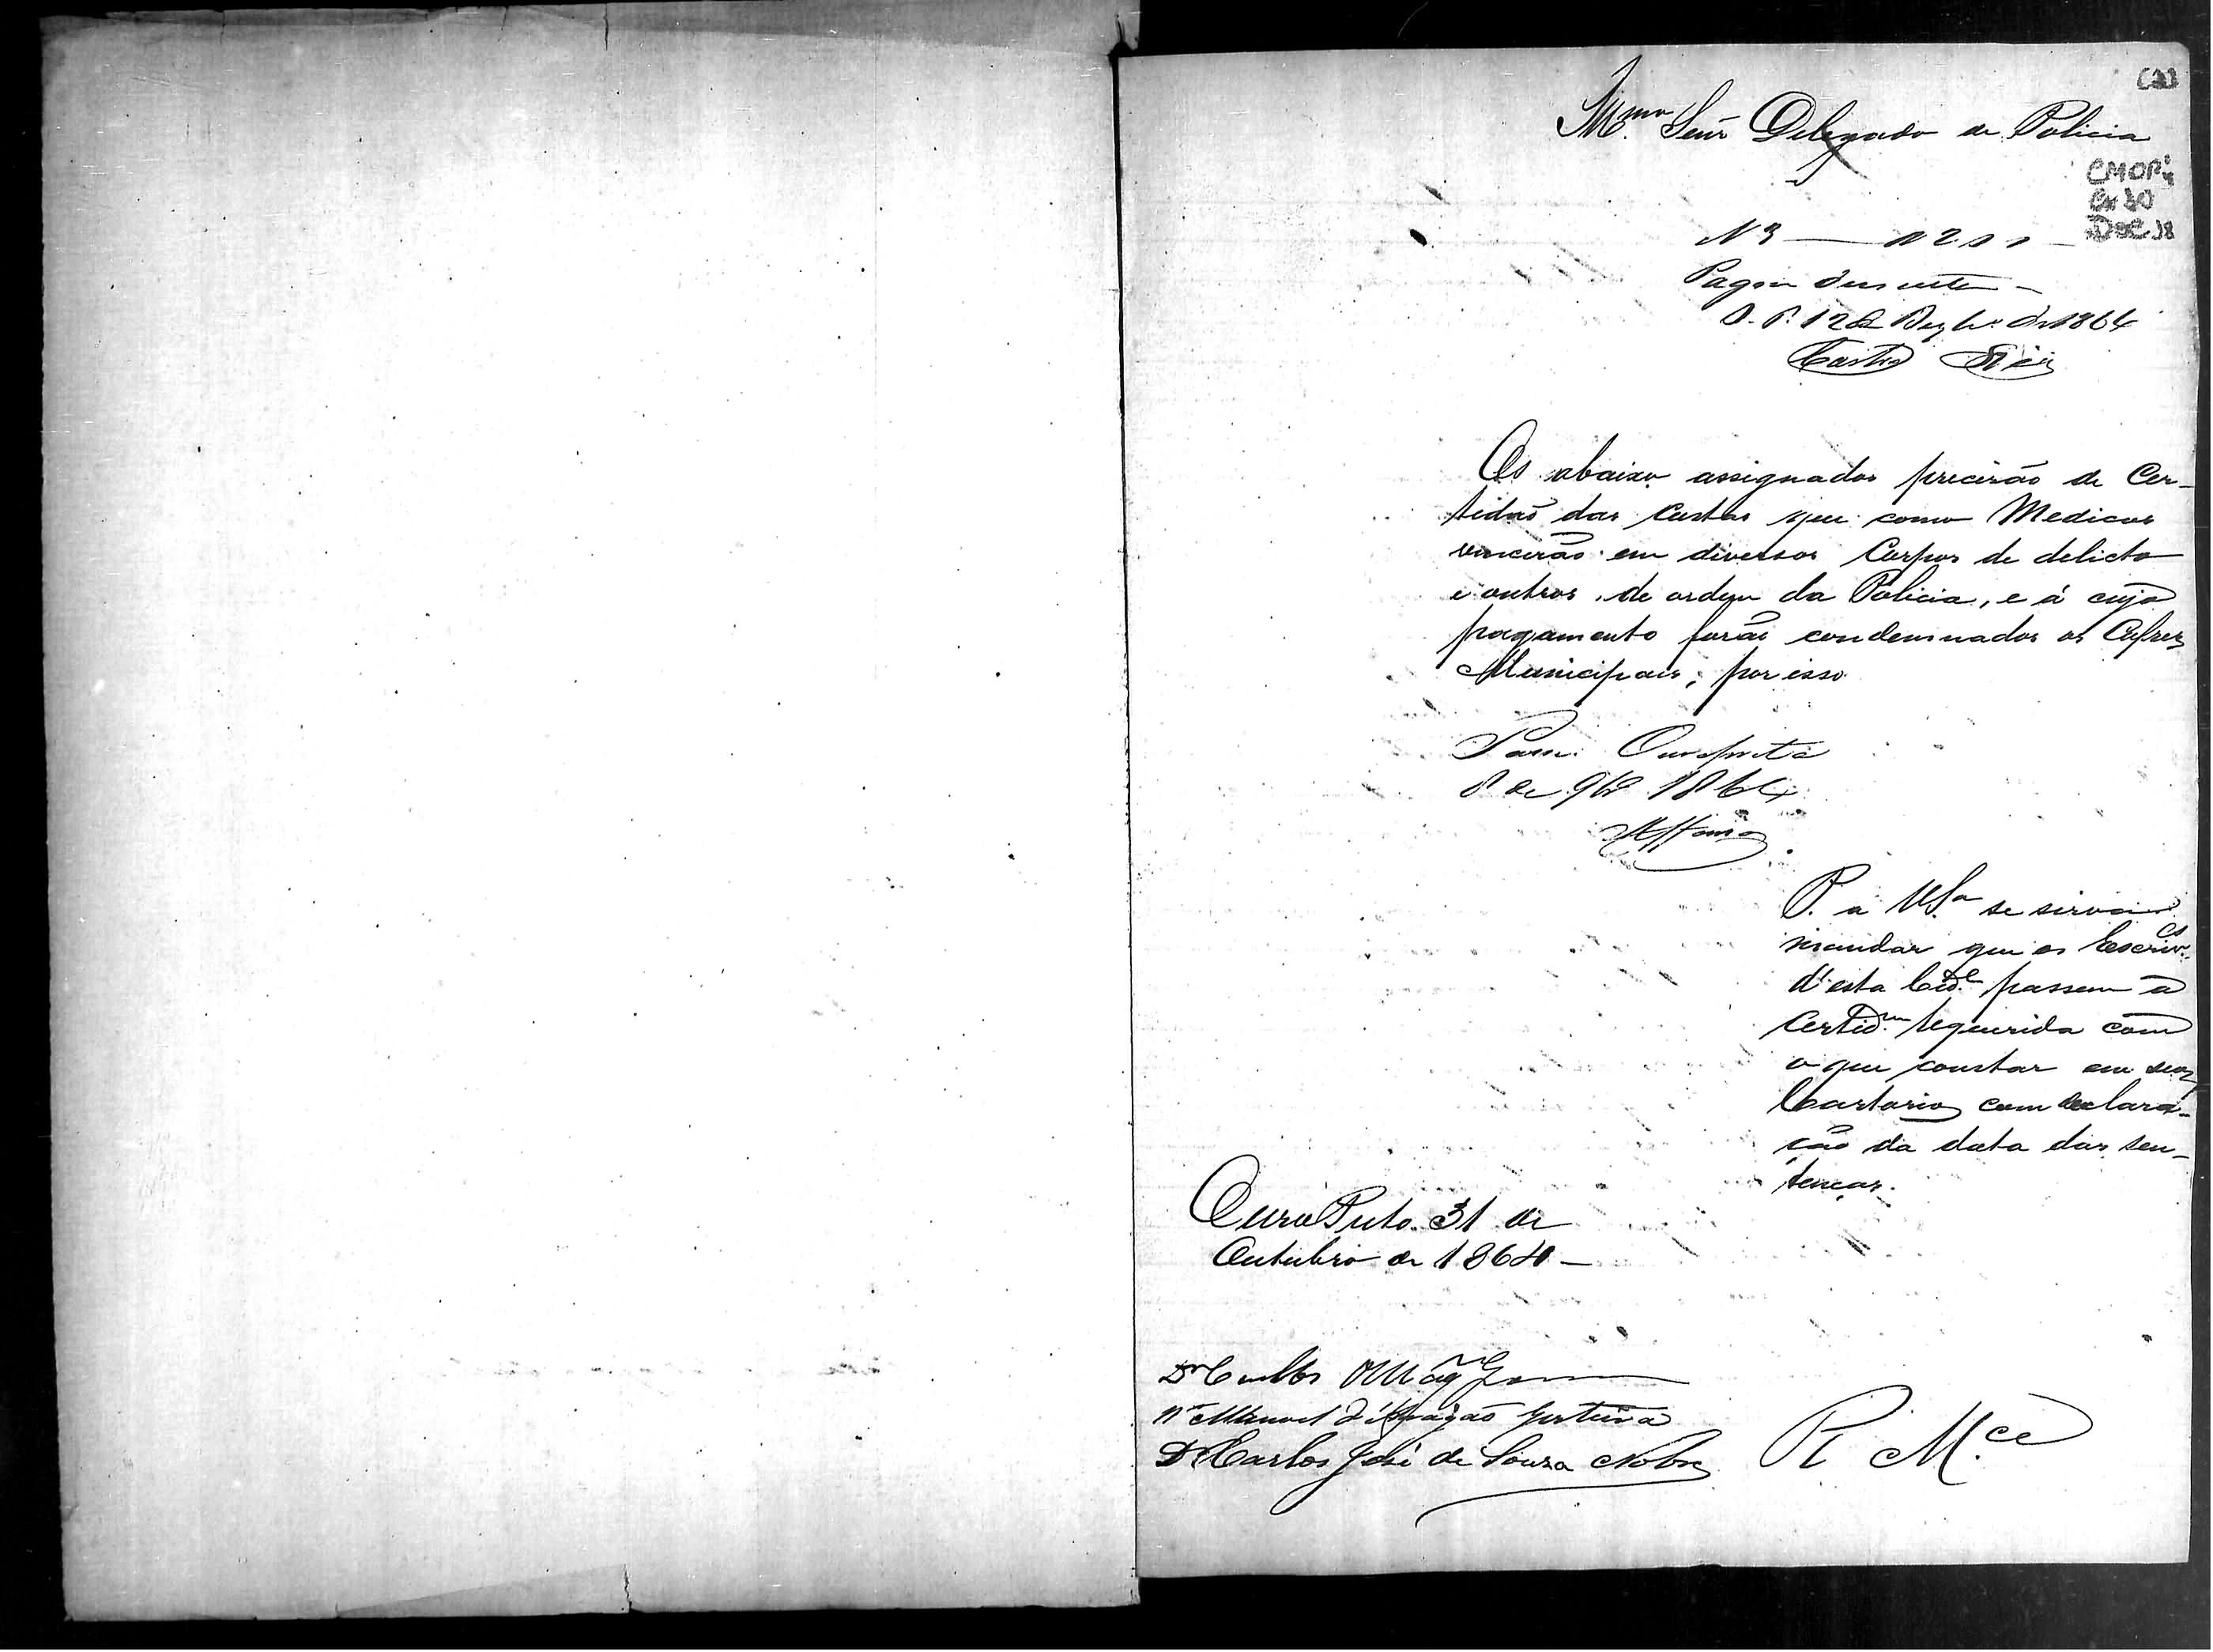 Illmo Senr Delegado de Policia
CMOP
Cx 80
DOC 38
N 3 — 1200
Pagou duzentos
O. P. 12 de Dezbro de 1864
Castro
Os abaixo assignados precisão de Cer-
tidaõ das Custas que como Medicos
vencerão em diversos Corpos de delicto
e outros de ordem da Policia, e á cujo
pagamento forão condemnados os Cofres
Municipais; por isso
Passe. Ouropreto
8 de 9bro 1864
Affonso
P. a VSa se sirva
mandar que os Escrives
d'esta Cide passem a
Certidm requerida com
o que constar em seus
Cartorios com declara-
ção da data das sen-
tenças.
Ouro Preto 31 de
Outubro de 1864 —
Dr Carlos
Dr Manoel d'Aragão Gesteira
Dr Carlos José de Souza Nobre
R Mce